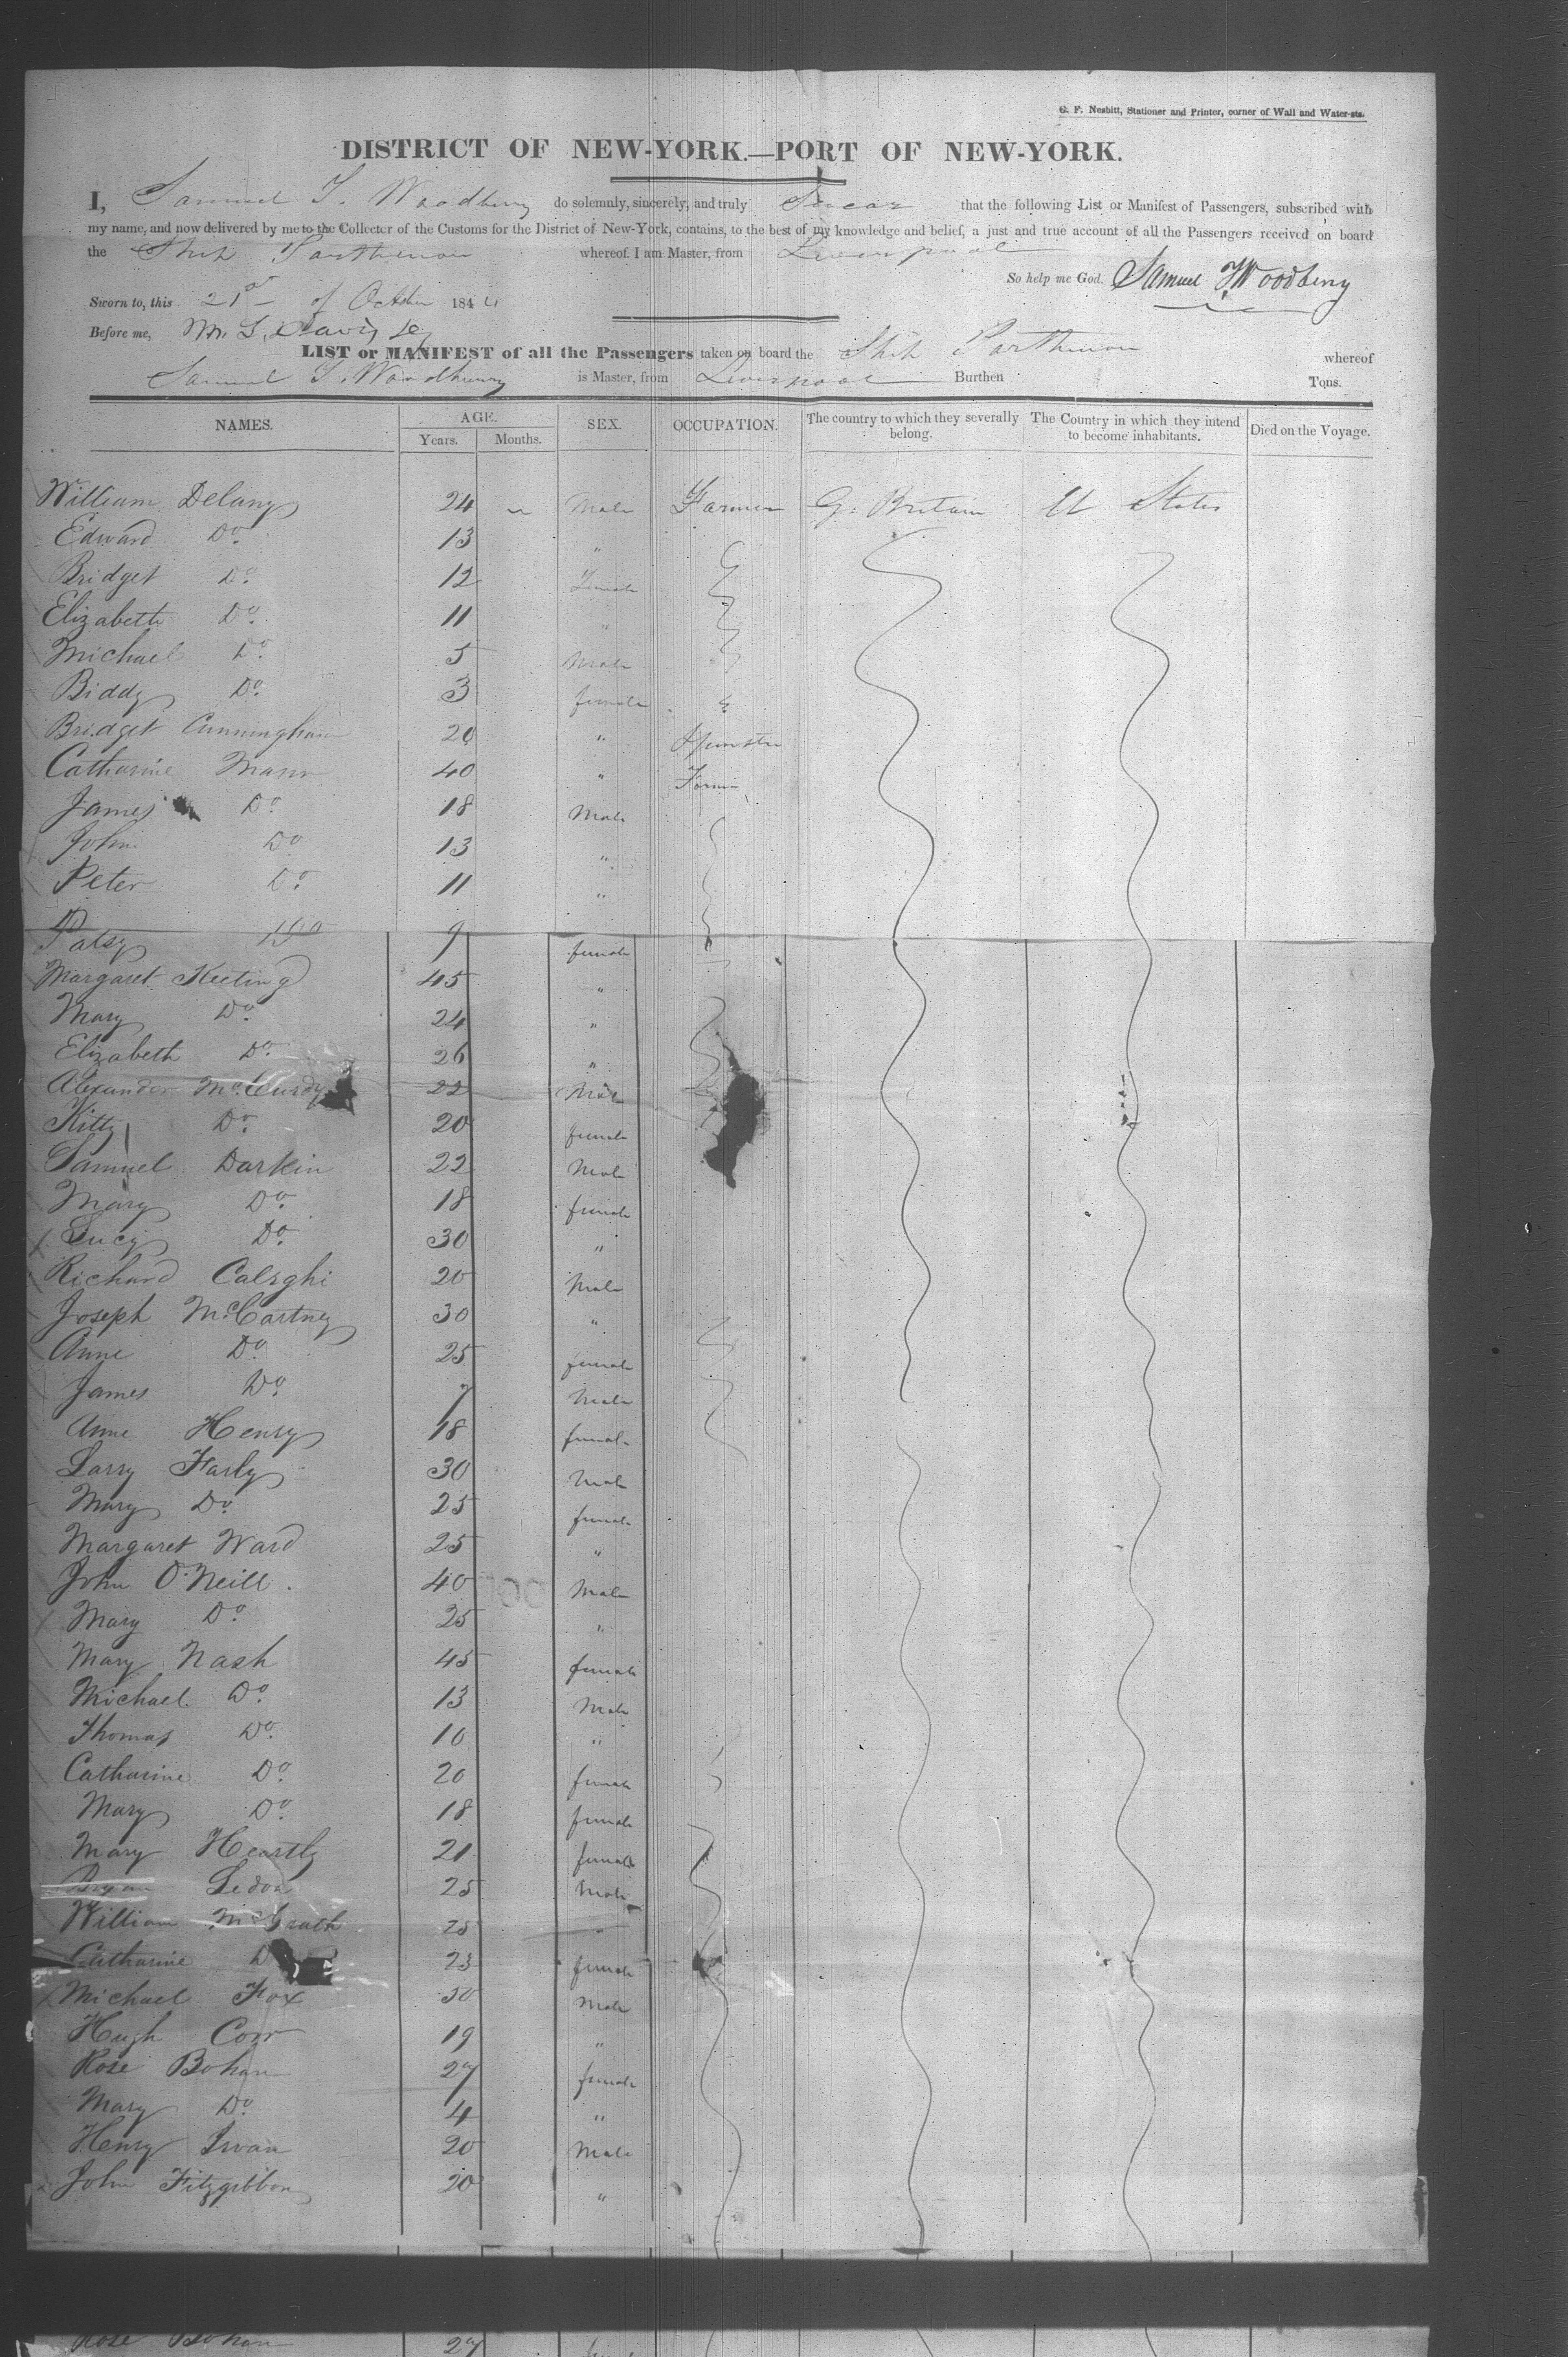 G. F. Nesbitt, Stationer and Printer, corner of Wall and Water-sts.
DISTRICT OF NEW-YORK.—PORT OF NEW-YORK.
I, Samuel T. Woodbery do solemnly, sincerely, and truly Swear that the following List or Manifest of Passengers, subscribed with
my name, and now delivered by me to the Collector of the Customs for the District of New-York, contains, to the best of my knowledge and belief, a just and true account of all the Passengers received on board
the Ship Parthenon whereof I am Master, from Liverpool
So help me God. Samuel Woodbery
Sworn to, this 21st of October 184
Before me,
LIST or MANIFEST of all the Passengers taken on board the Ship Parthenon whereof
Samuel T. Woodbury is Master, from Liverpool Burthen Tons.
NAMES. AGE. Years. Months. SEX. OCCUPATION. The country to which they severally belong. The Country in which they intend to become inhabitants. Died on the Voyage.
William Delany 24 Male Farmer G. Britain U States
Edward Do. 13 "
Bridget Do. 12 Female
Elizabeth Do. 11 "
Michael Do. 5 Male
Biddy Do. 3 female
Bridget Cunningham 20 " Spinster
Catharine Mann 40 "
James Do. 18 Male
John Do 13 "
Peter Do 11 "
Patsy Do 9 female
Margaret Keeting 45 "
Mary Do. 24 "
Elizabeth Do. 26 "
Alexander McCurdy 22 Male
Kitty Do. 20 female
Samuel Darkin 22 Male
Mary Do. 18 female
Lucy Do. 30 "
Richard Calsghi 20 Male
Joseph McCartney 30 "
Anne Do. 25 female
James Do. 7 Male
Anne Henry 18 female
Larry Farly 30 Male
Mary Do. 25 female
Margaret Ward 25 "
John O'Neill. 40 Male
Mary Do. 25 "
Mary Nash 45 female
Michael Do. 13 Male
Thomas Do. 10 "
Catharine Do. 20 female
Mary Do. 18 female
Mary Heartly 21 female
Ledon 25 Male
William McGrath 25 "
Catharine 23 female
Michael Fox 30 Male
Hugh Corr 19 "
Rose Bohan 27 female
Mary Do. 4 "
Henry Irvan 20 Male
John Fitzgibbon 20 "
Rose Bohan 27